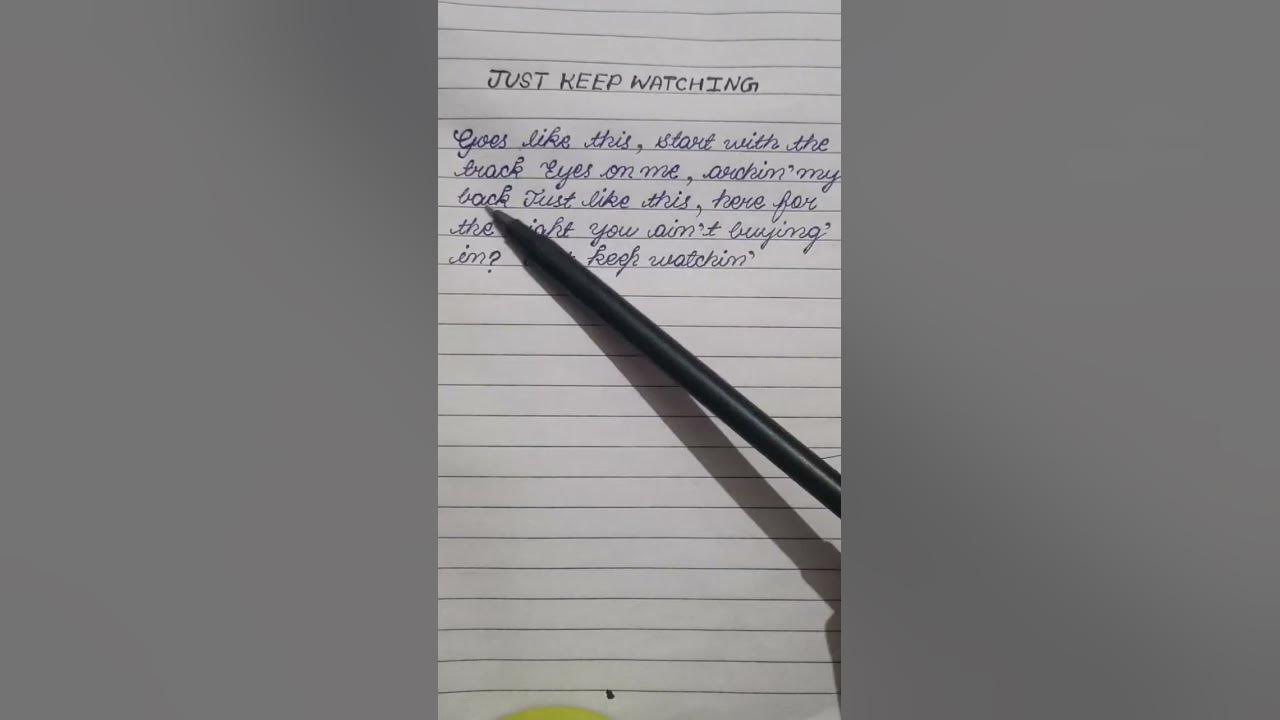 JUST KEEP WATCHING
Goes like this, start with the
track Eyes on me, archin' my
back Just like this, here for
the you ain't buying'
in? keep watchin'